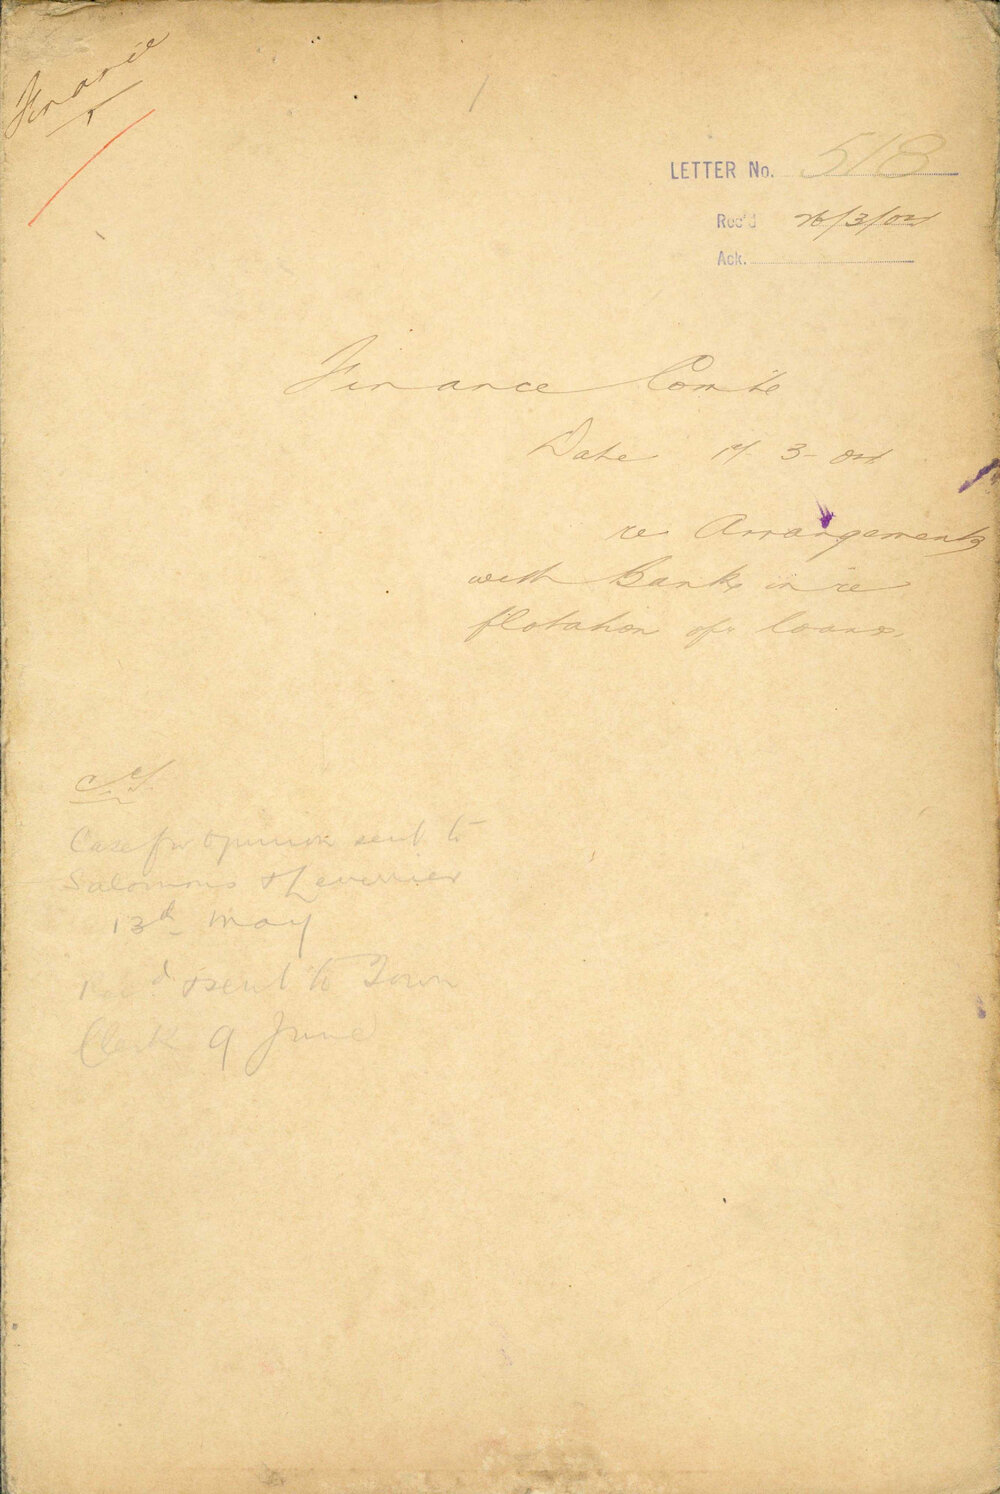 Finance
LETTER No. 518
Rec'd 26/3/04
Ack.
Finance Comte
Date 17-3-04
re Arrangements
with Banks in re
flotation of loans.
Case for opinion sent to
Salomons & Leverrier
13th May
& sent to Town
Clerk 9 June